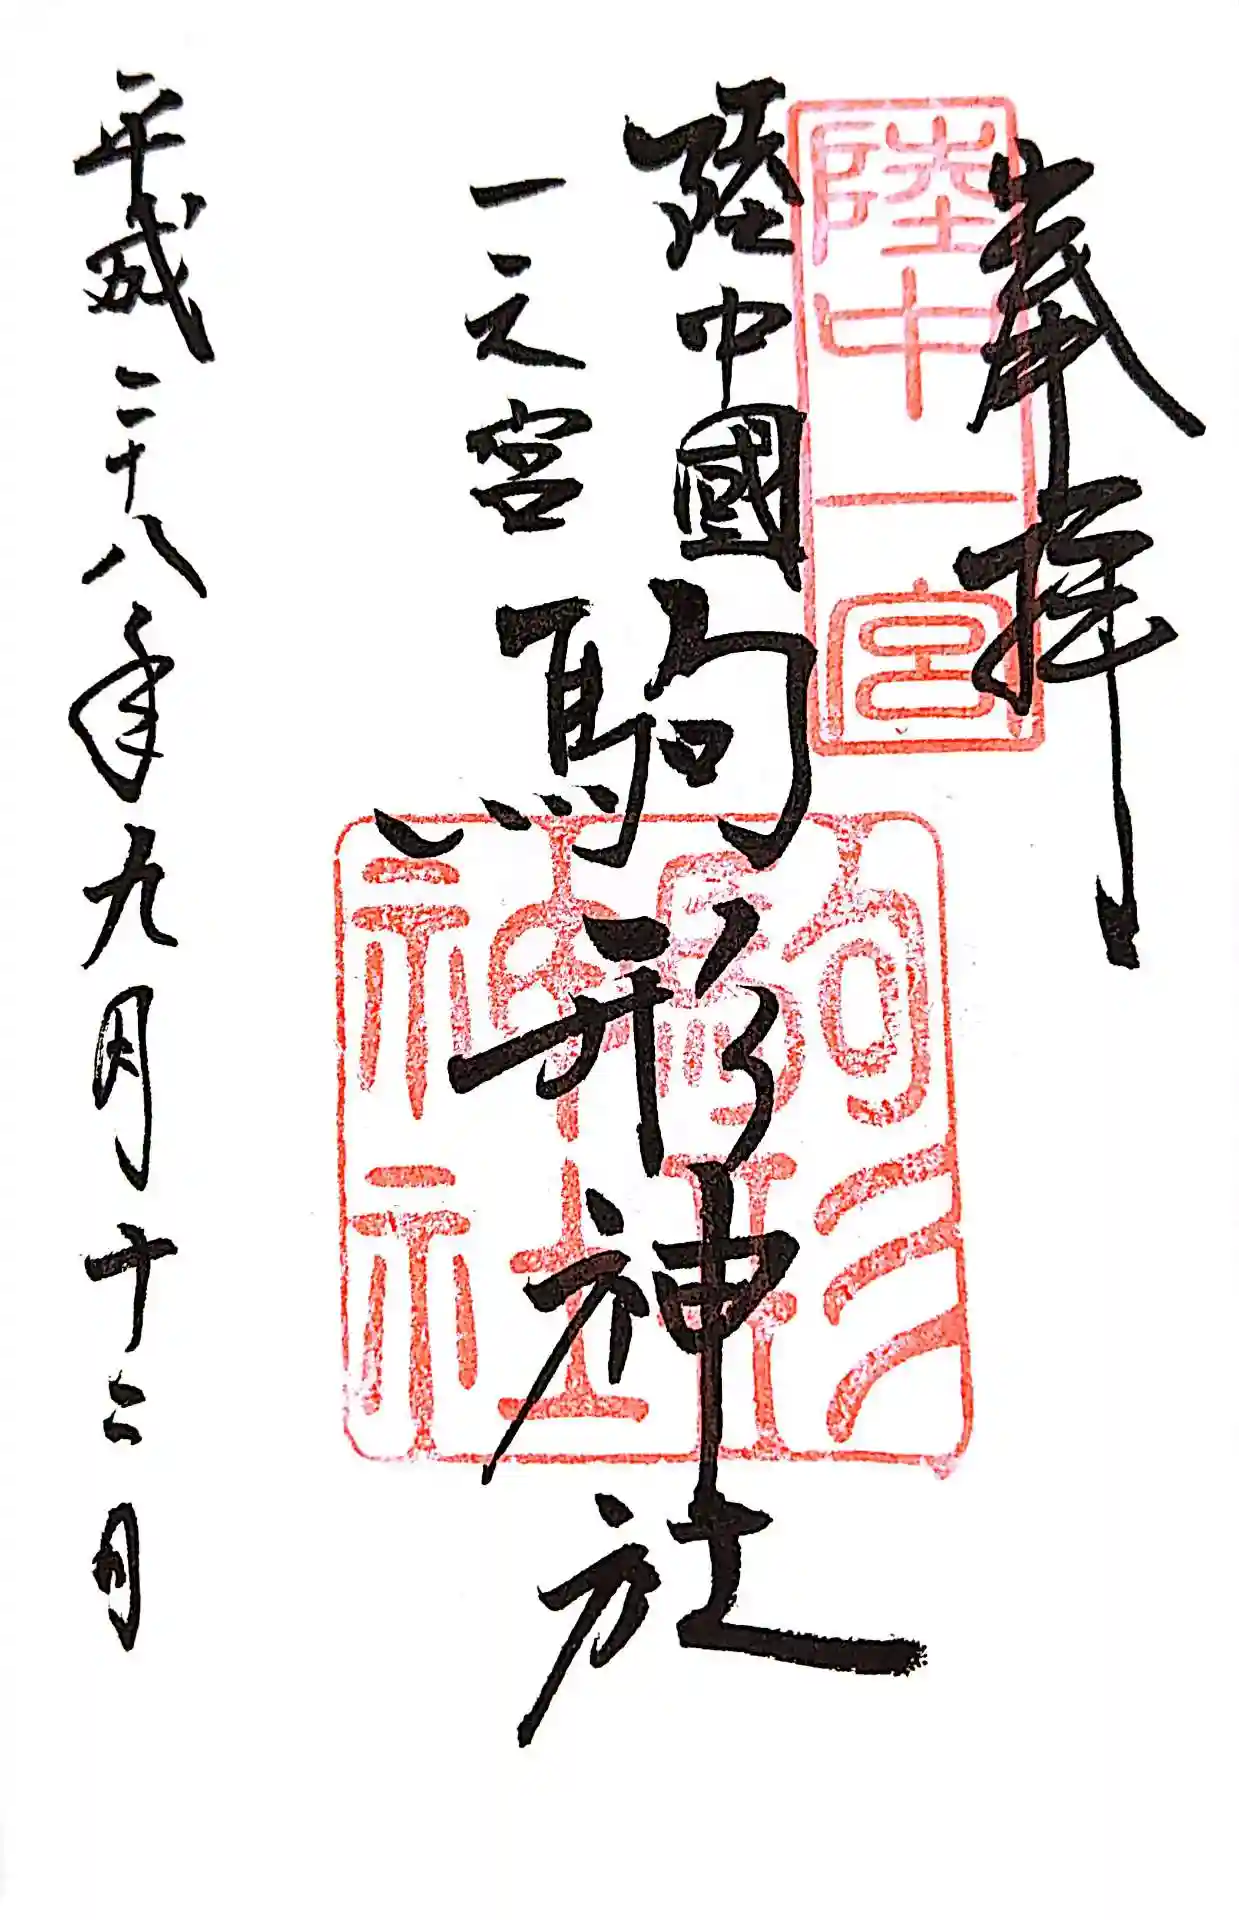 奉拝
陸中一宮
陸中國
一之宮
駒形神社
駒形
神社
平成二十八年九月十二日